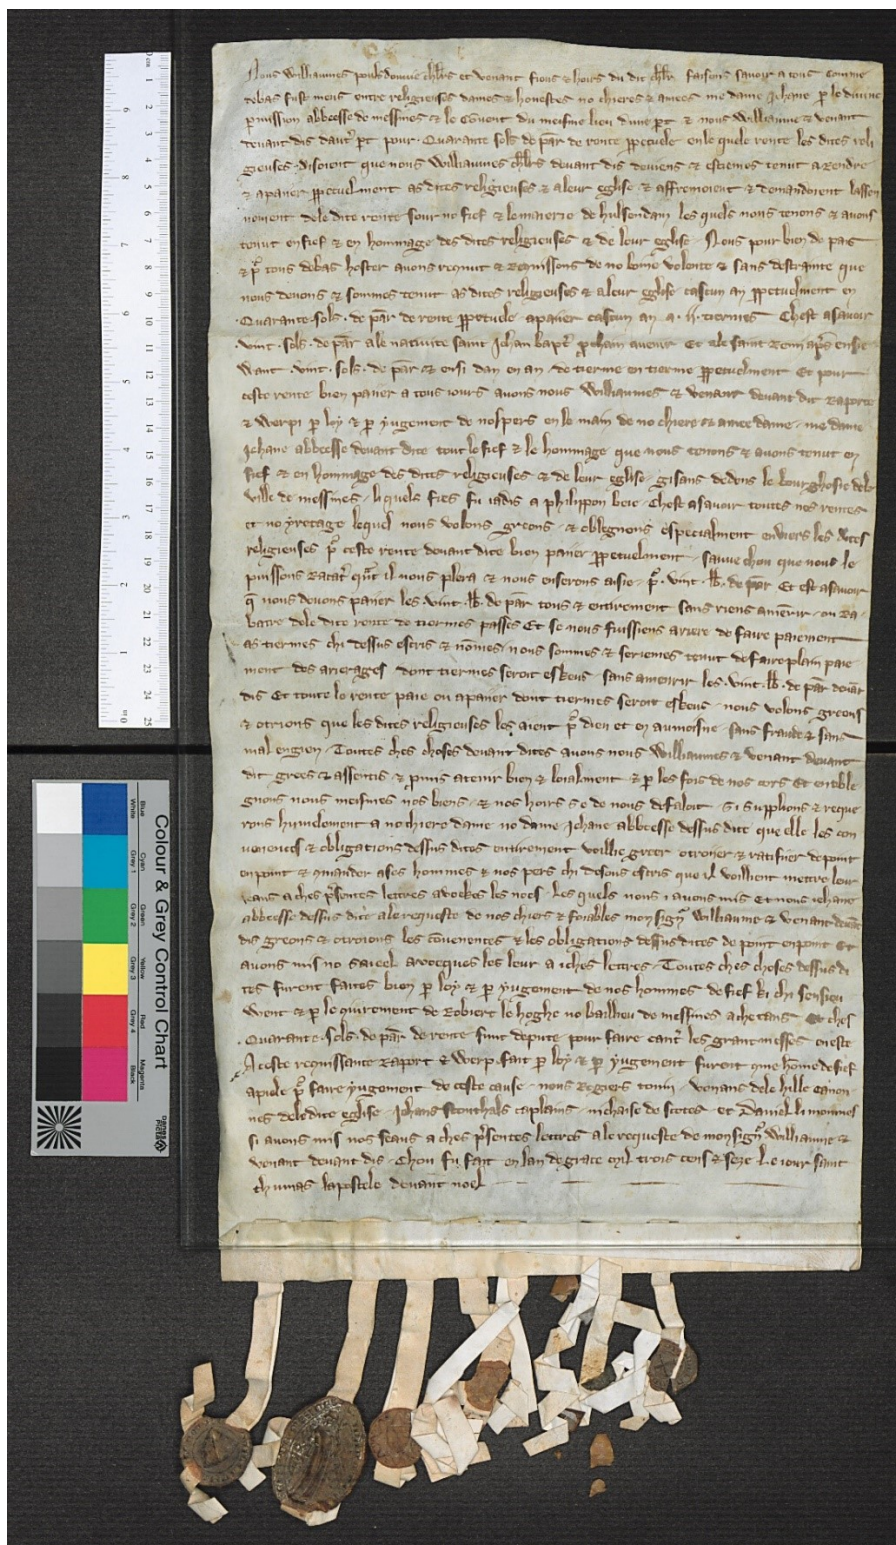 Nous Williaumes chlrs et venant fieus & hoirs du dit chlr faisons savoir a tous comme
debas fust meus entre religieuses dames & honestes no chieres & amees me dame Jehane p le divine
pmission abbeesse de messines & le couvent du meisme lieu dune pt & nous Williaume & venant
devant dis dautr pt pour Quarante sols de par de rente ppetuele en le quele rente les dites reli
gieuses disoient que nous Williaumes chlrs devant dis deviens & estiemes tenut a rendre
& a paiier ppetuelment as dites religieuses & a leur eglise & affremoient & demandoient lassen
nement de le dite rente sour no fief & le manoir de hulsendam les quels nous tenons & avons
tenut en fief & en hommage des dites religieuses & de leur eglise Nous pour bien de pais
& pr tous debas hoster avons reqnut & reqnissons de no boine volente & sans destrainte que
nous devons & sommes tenut as dites religieuses & a leur eglise cascun an ppetuelment en
Quarante sols de par de rente ppetuele a paiier cascun an a ij tiermes Chest asavoir
vint sols de par a le nativite saint Jehan bapt pchain avenir Et a le saint Remi apres ensie
want vint sols de par & ensi dan en an de tierme en tierme ppetuelment Et pour
ceste rente bien paiier a tous iours avons nous Williaumes & venant devant dit raporte
& werpi p loy & p iugement de nos pers en le main de no chiere & amee dame me dame
Jehane abbeesse devant dite tout le fief & le hommage que nous tenons & avons tenut en
fief & en hommage des dites religieuses & de leur eglise gisans dedens le bourghesie dele
ville de messines li quels fies fu iadis a philippon Chest asavoir toutes nos rentes
et no yretage lequel nous volons greons & oblegnons especialment enviers les dites
religieuses pr ceste rente devant dite bien paiier ppetuelment sauve chou que nous le
puissons racater qnt il nous plera & nous en serons aisie pr vint lb de par Et est asavoir
q nous devons paiier les vint lb de par tous & entirement sans riens amenrir ou ra
batre dele dite rente de tiermes passes Et se nous fuissiens ariere de faire paiement
as tiermes chi dessus escris & nomes nous sommes & seriemes tenut de faire plain paie
ment des arierages dont tiermes seroit eskeus sans amenrir les vint lb de par devant
dis Et toute le rente paie ou a paiier dont tiermes seroit eskeus nous volons greons
& otrions que les dites religieuses les aient pr dieu et en aumosne sans fraude & sans
mal engien Toutes ches choses devant dites avons nous Williaumes & venant devant
dit grees & assentis & pmis a tenir bien & loialment & p les fois de nos cors Et en oble
gnons nous meismes nos biens & nos hoirs se de nous defaloit Si supplions & reque
rons humelement a no chiere dame no dame Jehane abbeesse dessus dite que elle les con
venences & obligations dessus dites entirement voillie greer otroiier & ratefiier de point
en point & qmander a ses hommes & nos pers chi desous escris que il voillient mettre leur
seaus a ches presentes lettres avoekes les noes les quels nous i avons mis Et nous iehane
abbeesse dessus dite a le requeste de nos chiers & foiables mon signr Williaume & venant devant
dis greons & otroions les covenences & les obligations dessus dites de point en point Et
avons mis no saieel avoecques les leur a ches lettres Toutes ches choses dessus di
tes furent faites bien p loy & p iugement de nos hommes de fief ki chi sensieu
went & p le qiurement de Robiert le hoghe no baillieu de messines a che tans Et ches
Quarante sols de par de rente sunt depute pour faire cantr les grant messes en este
A ceste reqnissance raport & werp fait p loy & p iugement furent qme home de fief
apiele pr faire iugement de ceste cause nous Regiers venans dele hille canon
nes dele dite eglise Jehans caplains nichaise de scotes et Daniel li monnes
si avons mis nos seaus a ches presentes lettres a le requeste de mon signr Williaume &
venant devant dis Chou fu fait en lan de grace mil trois cens & seze Le iour saint
thumas lapostele devant noel
Colour & Grey Control Chart
Blue Cyan Green Yellow Red Magenta
White Grey 1 Grey 2 Grey 3 Grey 4 Black